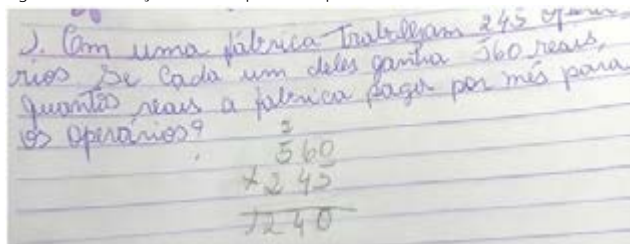 J. Com uma fábrica Trabalham 245 operá-
rios Se Cada um deles ganha 560 reais,
quantos reais a fabrica pagar por mês para
os Operários?
2
560
+245
1240